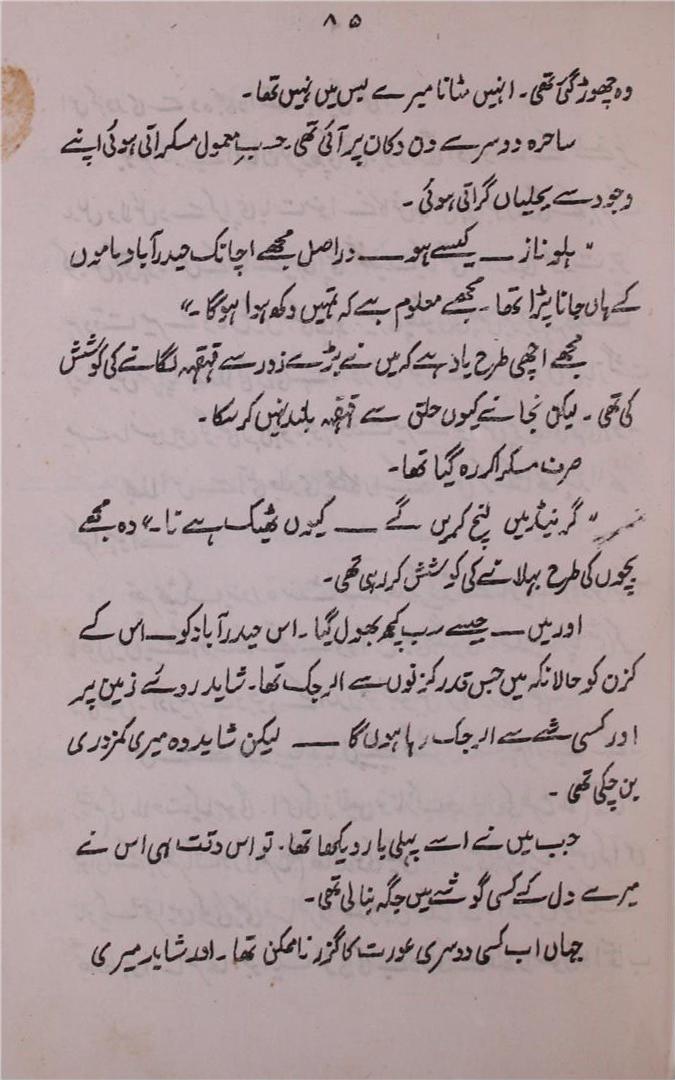 ۸۵
وہ چھوڑ گئی تھی ۔ انہیں مٹانا میرے بس میں نہیں تھا ۔
ساحرہ دوسرے دن دکان پر آئی تھی ۔ حسبِ معمول مسکراتی ہوئی اپنے
وجود سے بجلیاں گراتی ہوئی ۔
" ہلو ناز ــــ کیسے ہو ــــ دراصل مجھے اچانک حیدرآباد ماموں
کے ہاں جانا پڑا تھا ۔ مجھے معلوم ہے کہ تمہیں دکھ ہوا ہوگا ۔"
مجھے اچھی طرح یاد ہے کہ میں نے بڑے زور سے قہقہہ لگانے کی کوشش
کی تھی ۔ لیکن نجانے کیوں حلق سے قہقہہ بلند نہیں کرسکا ۔
صرف مسکرا کر رہ گیا تھا ۔
" گرنیڈ میں لنچ کریں گے ــــ کیوں ٹھیک ہے نا ۔" وہ مجھے
بچوں کی طرح بہلانے کی کوشش کررہی تھی ۔
اور میں ــــ جیسے سب کچھ بھول گیا ۔ اس حیدرآباد کو ــــ اس کے
کزن کو حالانکہ میں جس قدر کزنوں سے الرجک تھا ۔ شاید روئے زمین پر
اور کسی شے سے الرجک رہا ہوں گا ــــ لیکن شاید وہ میری کمزوری
بن چکی تھی ۔
جب میں نے اسے پہلی بار دیکھا تھا ۔ تو اس وقت ہی اس نے
میرے دل کے کسی گوشے میں جگہ بنالی تھی ۔
جہاں اب کسی دوسری عورت کا گزر ناممکن تھا ۔ اور شاید میری